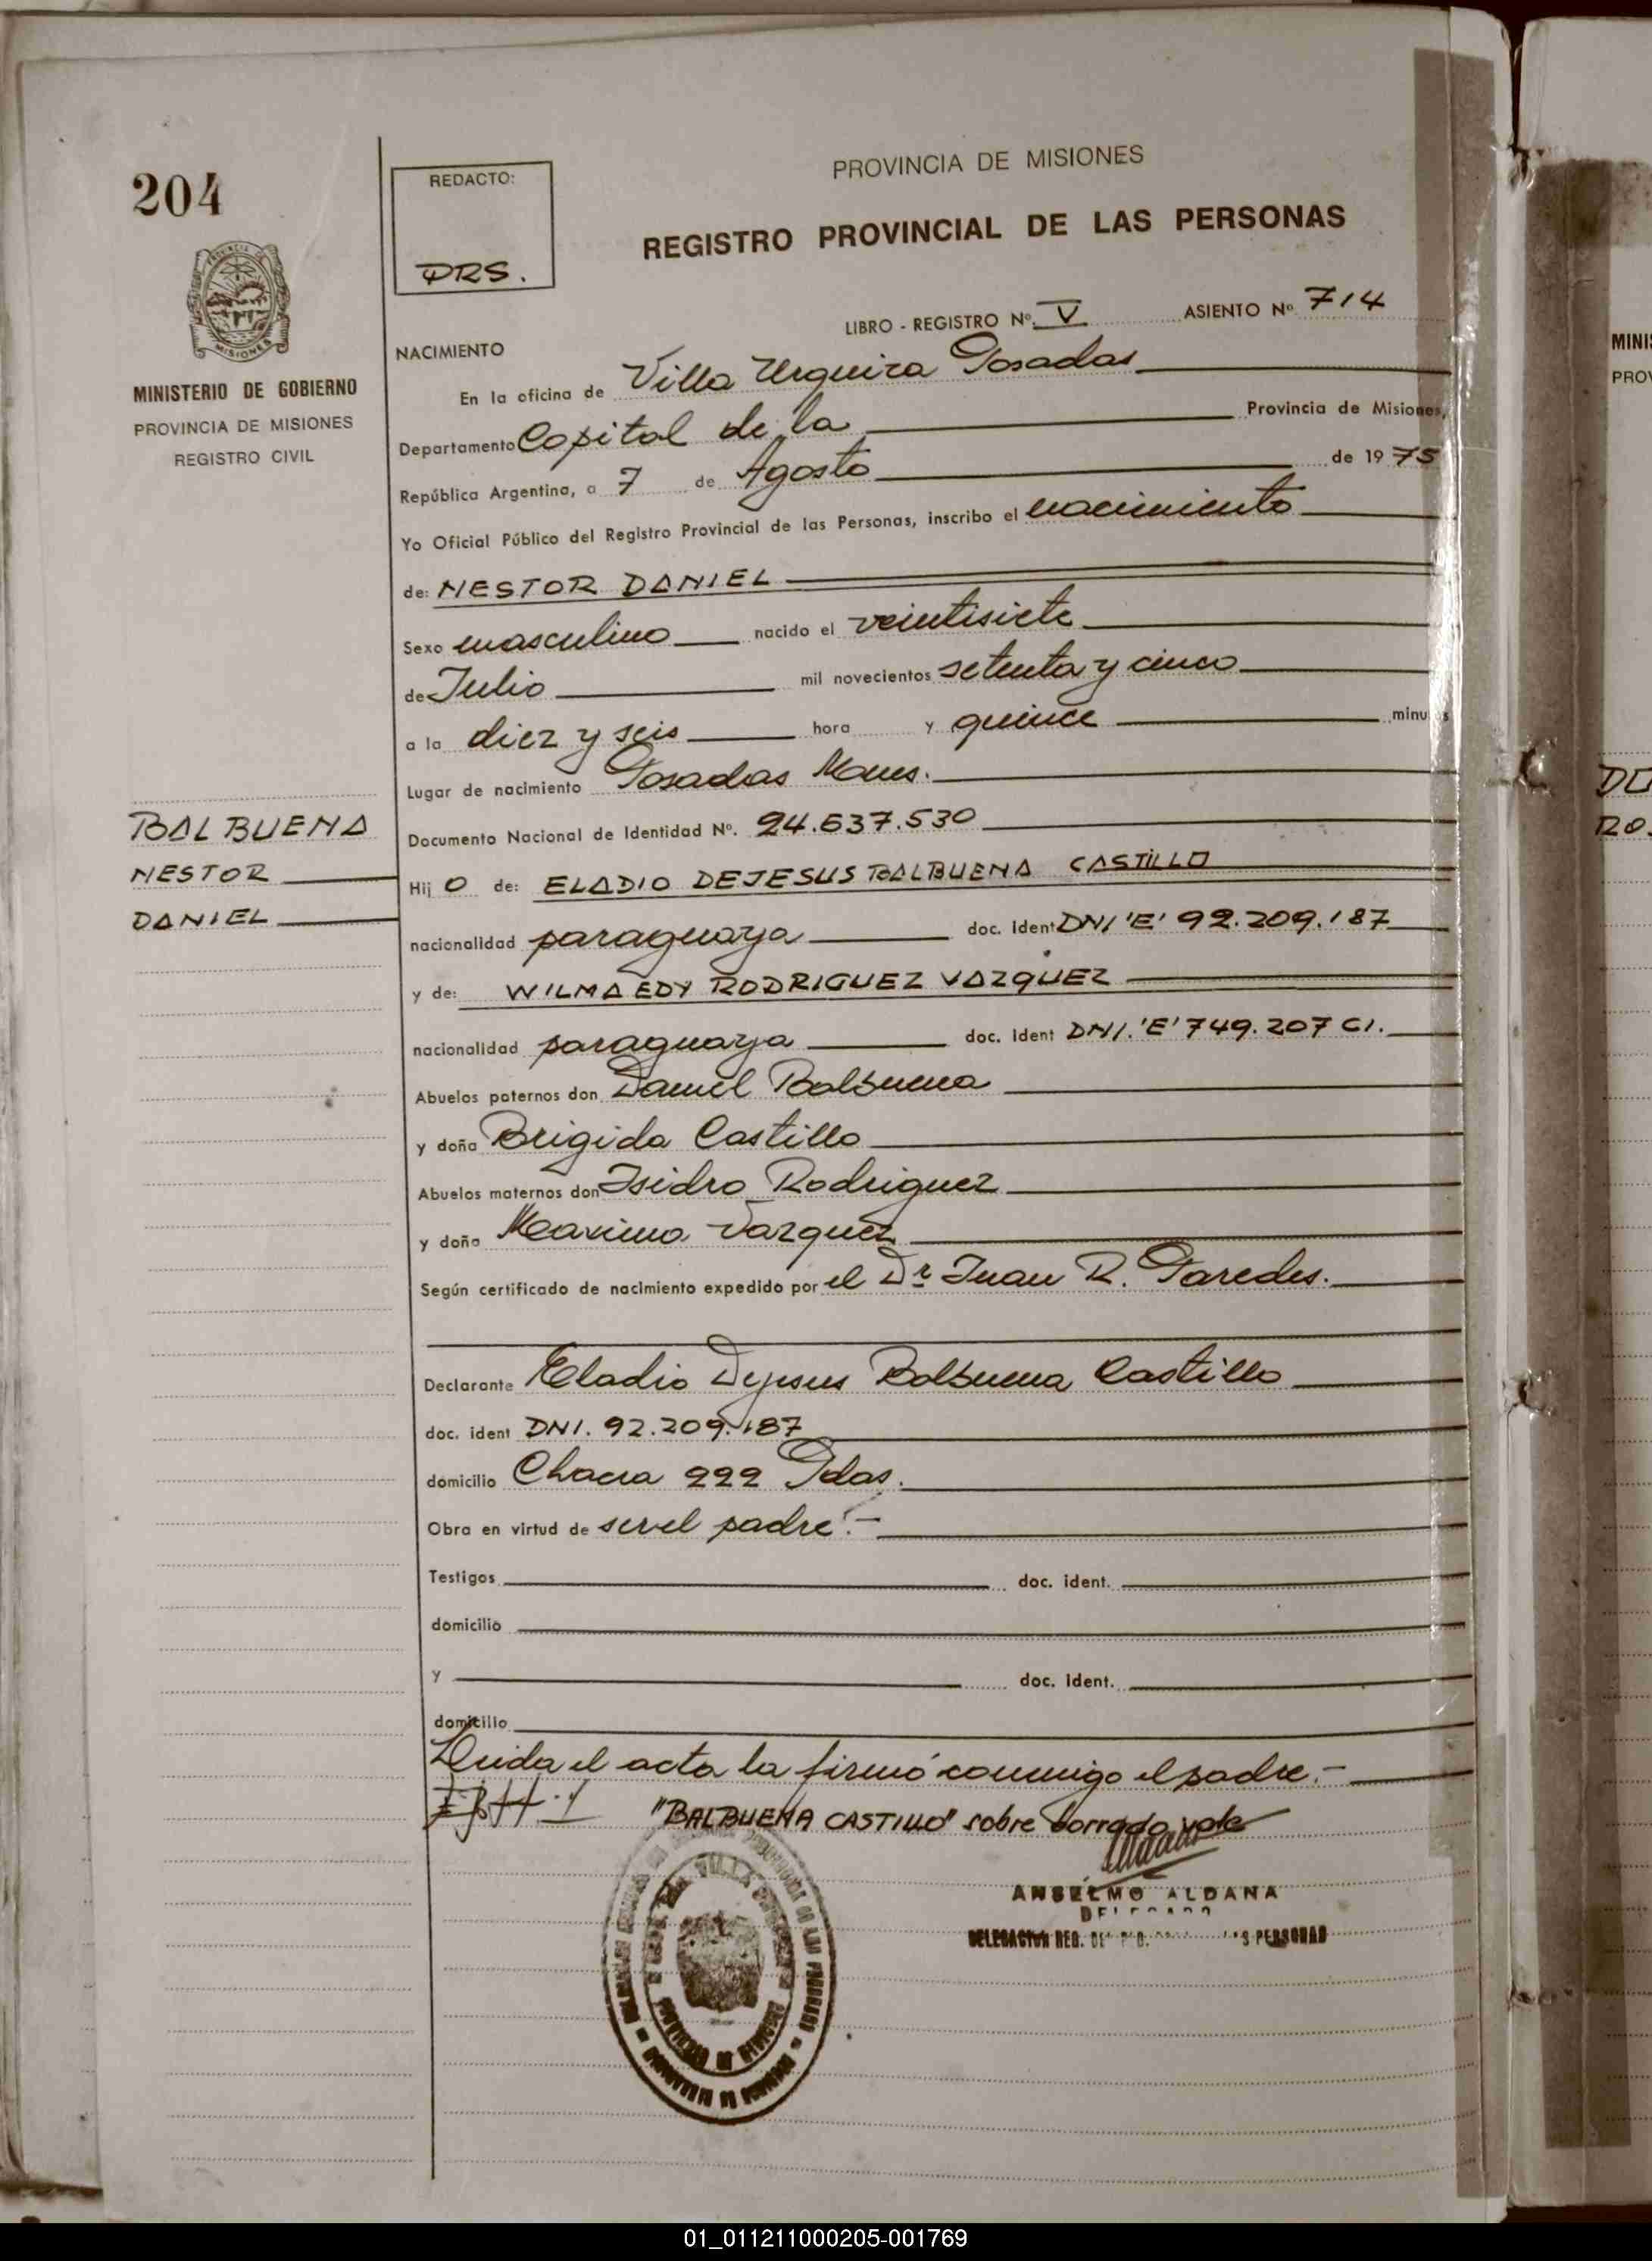 204
REDACTO:
DRS.
PROVINCIA DE MISIONES
REGISTRO PROVINCIAL DE LAS PERSONAS
PROVINCIA DE
MISIONES
MINISTERIO DE GOBIERNO
PROVINCIA DE MISIONES
REGISTRO CIVIL
LIBRO - REGISTRO Nº. V ASIENTO Nº 714
NACIMIENTO
En la oficina de Villa Urquiza Posadas
Departamento Capital de la Provincia de Misiones,
República Argentina, a 7 de Agosto de 1975
Yo Oficial Público del Registro Provincial de las Personas, inscribo el nacimiento
de: NESTOR DANIEL
Sexo masculino nacido el veintisiete
de Julio mil novecientos setenta y cinco
a la diez y seis hora y quince minutos
Lugar de nacimiento Posadas Mnes.
BALBUENA
NESTOR
DANIEL
Documento Nacional de Identidad Nº. 24.637.530
Hij o de: ELADIO DEJESUS BALBUENA CASTILLO
nacionalidad paraguaya doc. Ident DNI 'E' 92.209.187
y de: WILMA EDY RODRIGUEZ VAZQUEZ
nacionalidad paraguaya doc. Ident DNI. 'E' 749.207 CI.
Abuelos paternos don Daniel Balbuena
y doña Brigida Castillo
Abuelos maternos don Isidro Rodriguez
y doña Maxima Vazquez
Según certificado de nacimiento expedido por el Dr Juan R. Paredes.
Declarante Eladio Dejesus Balbuena Castillo
doc. ident DNI. 92.209.187
domicilio Chacra 222 Pdas.
Obra en virtud de ser el padre.-
Testigos doc. ident.
domicilio
y doc. ident.
domicilio
Leida el acta la firmó conmigo el padre.-
"BALBUENA CASTILLO" sobre borrado vale
ANSELMO ALDANA
DELEGADO
DELEGACION REG. PERSONAS
VILLA
PROVINCIA DE MISIONES
MINI
PROV
DU
RO
01_011211000205-001769